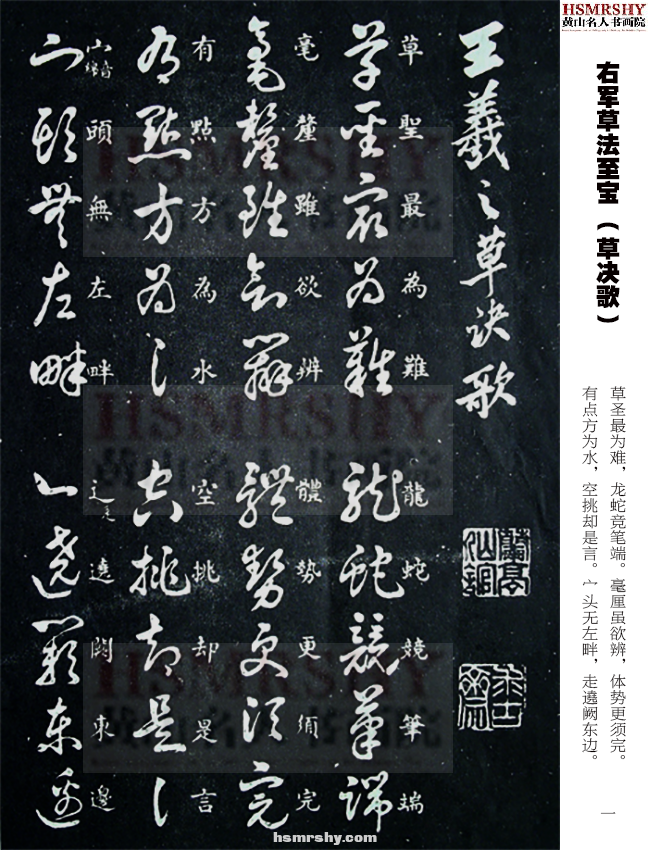 HSMRSHY
黄山名人书画院
右军草法至宝（草决歌）
草圣最为难，龙蛇竞笔端。毫厘虽欲辨，体势更须完。
有点方为水，空挑却是言。宀头无左畔，走遶阙东边。
一
王羲之草诀歌
草聖最為難
龍蛇競筆端
毫釐雖欲辨
體勢更須完
有點方為水
空挑却是言
頭無左畔
遶闕東邊
HSMRSHY
黄山名人书画院
HSMRSHY
黄山名人书画院
HSMRSHY
黄山名人书画院
hsmrshy.com